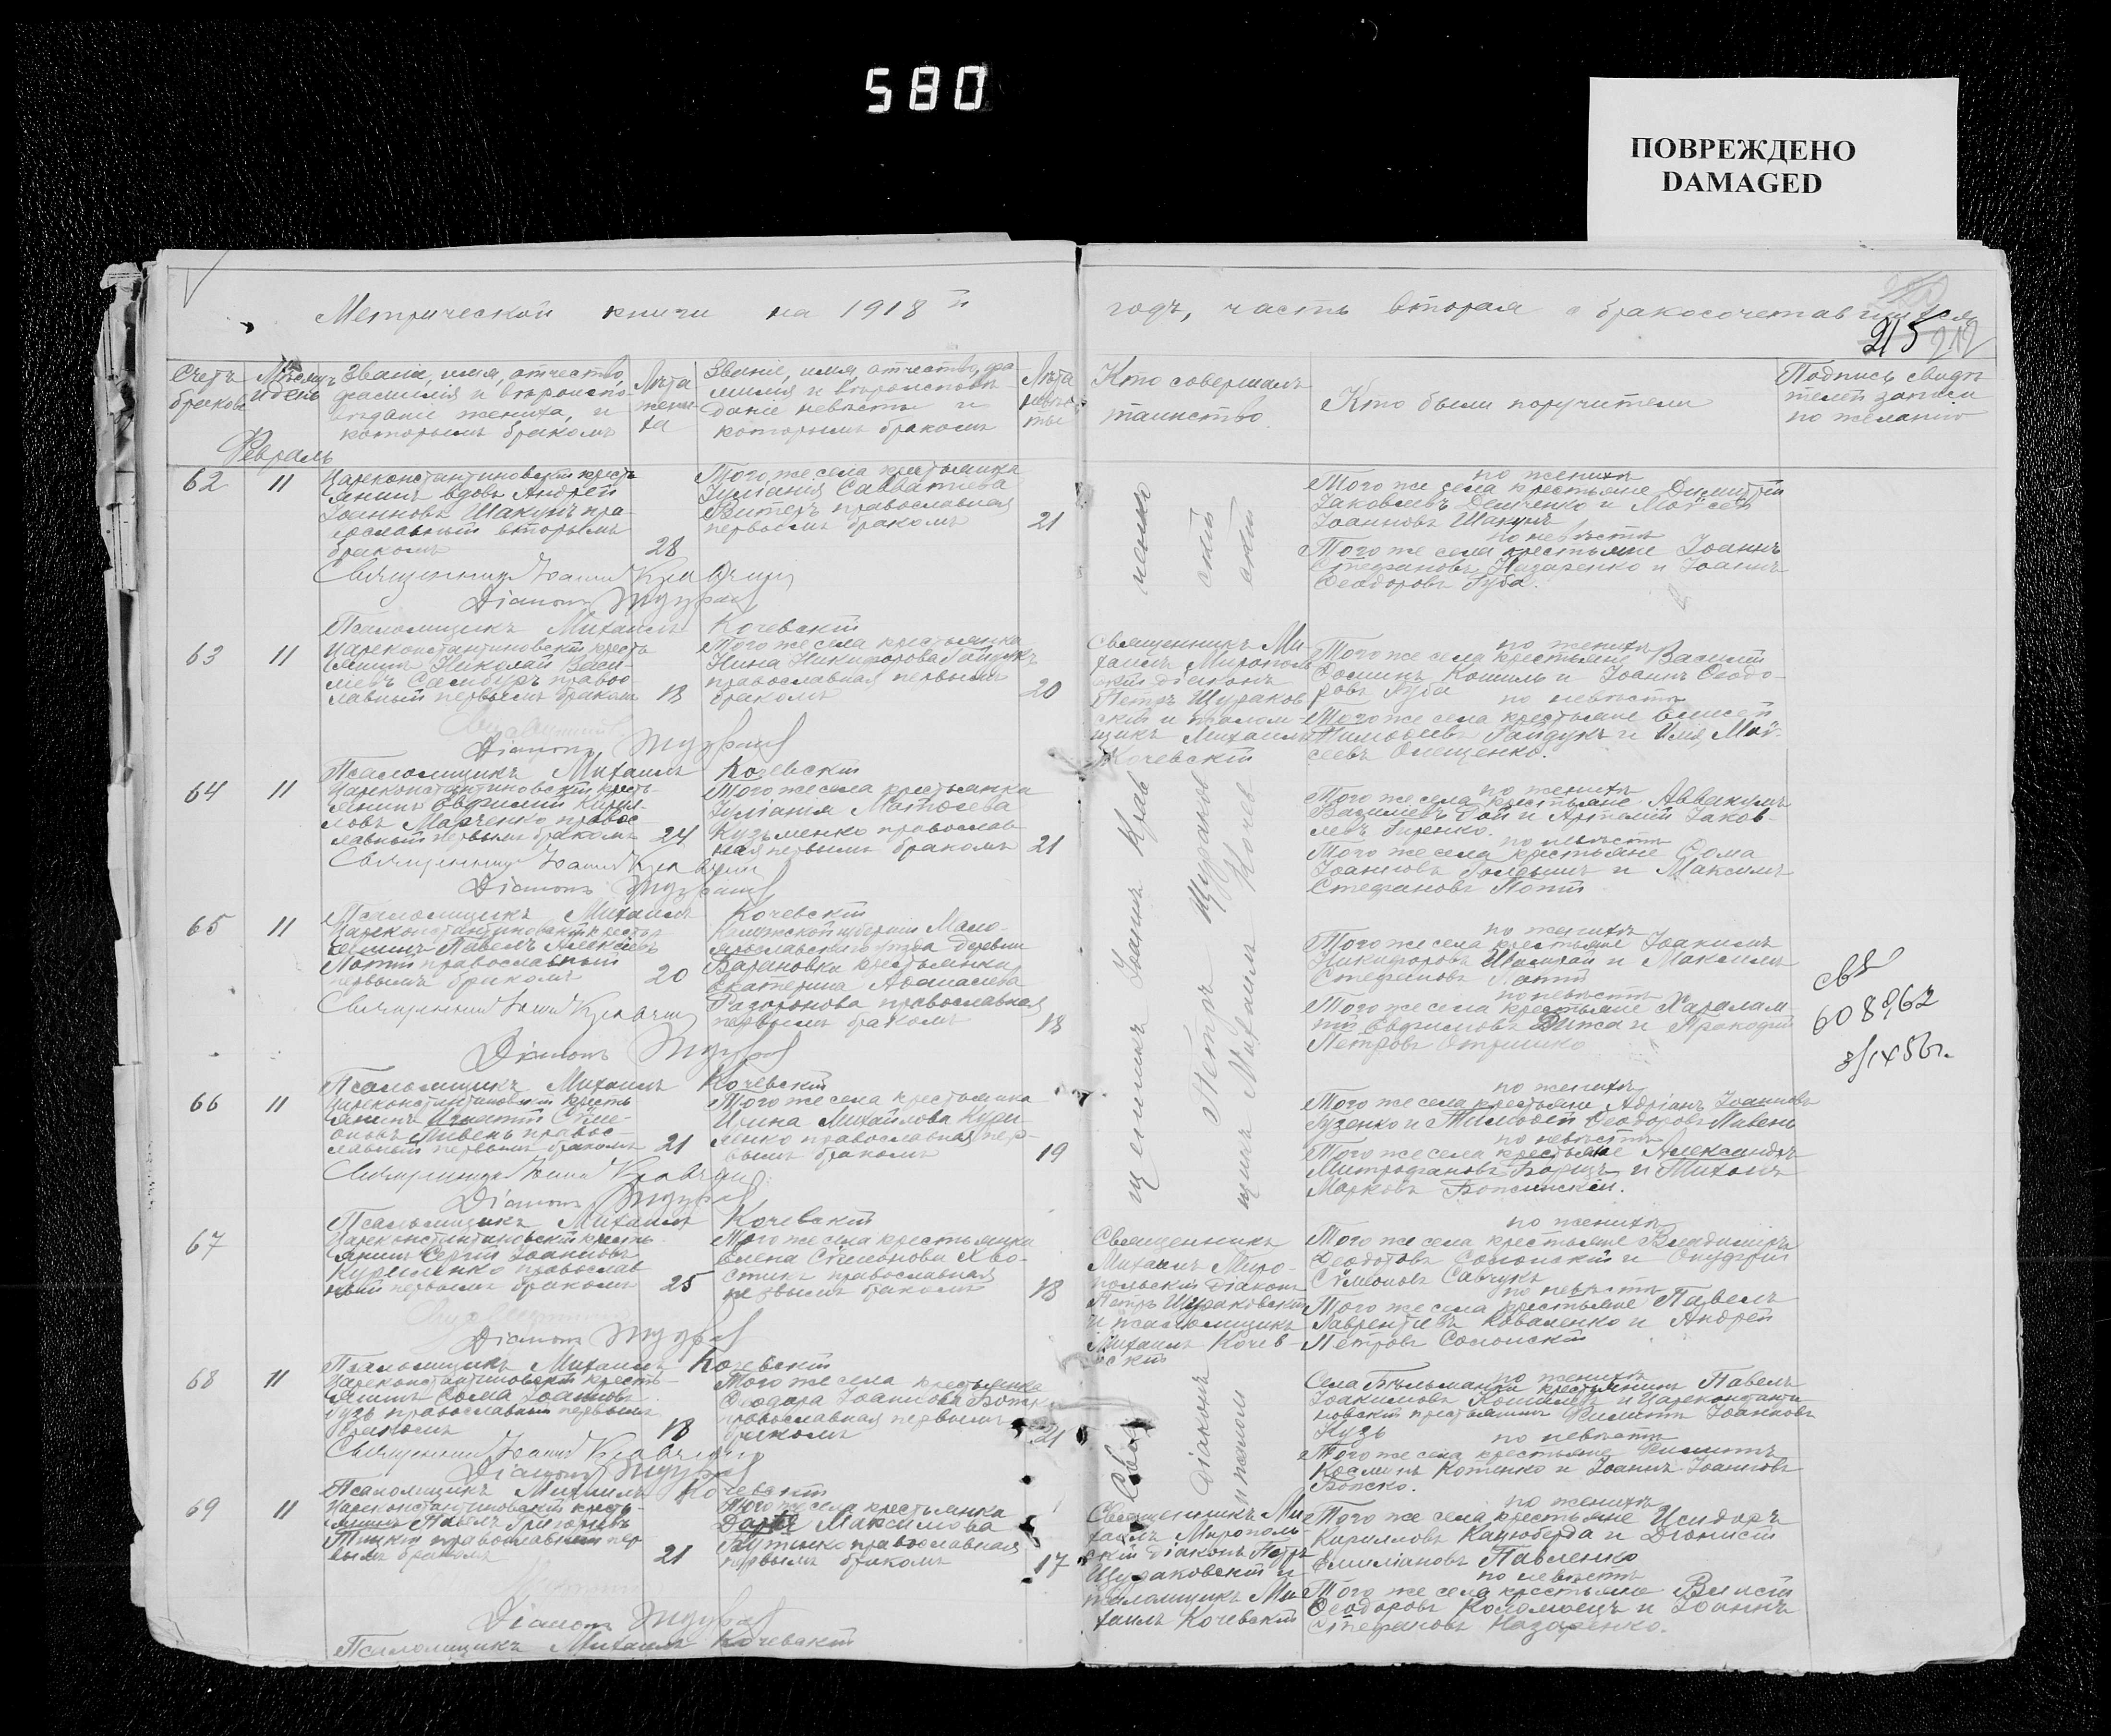 580
ПОВРЕЖДЕНО
DAMAGED
Метрической книги на 1918 й
годъ, часть вторая о бракосочетавшихся
215 212
Счетъ
браковъ
Мѣсяцъ
и день
Званіе, имя, отчество,
фамилія и вѣроиспо-
вѣданіе жениха, и
которымъ бракомъ
Лѣта
жени-
ха
Званіе, имя, отчество, фа-
милия и вѣроисповѣ-
даніе невѣсты и
которымъ бракомъ
Лѣта
невѣс-
ты
Кто совершалъ
таинство
Кто были поручители
Подпись свидѣ-
телей записи
по желанію
Февраль
62
11
Цареконстантиновскій кресть-
янинъ вдовъ Андрей
Іоанновъ Шакунъ пра-
вославный вторымъ
бракомъ
28
Того же села крестьянка
Іуліанія Савватіева
православная
первымъ бракомъ
21
по женихѣ
Того же села крестьяне Димитрій
Іаковлевъ Демченко и Моѵсей
Іоанновъ Шакунъ
по невѣстѣ
Того же села крестьяне Іоаннъ
Стефановъ Назаренко и Іоаннъ
Ѳеодоровъ Губа.
Священникъ Іоаннъ Кравченко
Діаконъ
Псаломщикъ Михаилъ Кочевскій
63
11
Цареконстантиновскій кресть-
янинъ Николай Васи-
льевъ Самбуръ правос-
лавный первымъ бракомъ
18
Того же села крестьянка
Нина Никифорова Гайдукъ
православная первымъ
бракомъ
20
Священникъ Ми-
хаилъ Мирополь-
скій діаконъ
Петръ Щураков-
скій и псалом-
щикъ Михаилъ
Кочевскій
по женихѣ
Того же села крестьяне Василій
Ѳоминъ Кошиль и Іоаннъ Ѳеодо-
ровъ Губа
по невѣстѣ
Того же села крестьяне Елисей
Тимоѳеевъ Гайдукъ и Илія Моѵ-
сеевъ Олещенко.
Діаконъ
Псаломщикъ Михаилъ Кочевскій
64
11
Цареконстантиновскій кресть-
янинъ Евфимій Кирил-
ловъ Марченко правос-
лавный первымъ бракомъ
24
Того же села крестьянка
Іуліанія Матѳеева
Кузьменко православ-
ная первымъ бракомъ
21
по женихѣ
Того же села крестьяне Аввакумъ
Василіевъ Гой и Артемій Іаков-
левъ Гиренко.
по невѣстѣ
Того же села крестьяне Ѳома
Іоанновъ и Максимъ
Стефановъ Попій
Священникъ Іоаннъ Кравченко
Діаконъ
Псаломщикъ Михаилъ Кочевскій
65
11
Цареконстантиновскій кресть-
янинъ Павелъ Алексѣевъ
православный
первымъ бракомъ
20
Калужской губерніи Мало-
ярославскаго уѣзда деревни
Барановки крестьянка
Екатерина Аѳанасіева
православная
первымъ бракомъ
18
по женихѣ
Того же села крестьяне Іоакимъ
Никифоровъ и Максимъ
Стефановъ
по невѣстѣ
Того же села крестьяне Харалам-
пій Евфимовъ и Прокофій
Петровъ
608962
Священникъ Іоаннъ Кравченко
Діаконъ
Псаломщикъ Михаилъ Кочевскій
66
11
Цареконстантиновскій кресть-
янинъ Игнатій Сѵме-
оновъ Пивень правос-
лавный первымъ бракомъ
21
Того же села крестьянка
Ирина Михайлова Кури-
ленко православная пер-
вымъ бракомъ
19
по женихѣ
Того же села крестьяне Адріанъ Іоанновъ
Гузенко и Тимоѳей Ѳеодоровъ Пивень
по невѣстѣ
Того же села крестьяне Александръ
Митрофановъ Борицъ и Михаилъ
Марковъ
Священникъ Іоаннъ Кравченко
Діаконъ
Псаломщикъ Михаилъ Кочевскій
67
Цареконстантиновскій кресть-
янинъ Сергій Іоанновъ
Куриленко православ-
ный первымъ бракомъ
25
Того же села крестьянка
Елена Сѵмеонова Хво-
стикъ православная
первымъ бракомъ
18
Священникъ
Михаилъ Миро-
польскій діаконъ
Петръ Щураковскій
и псаломщикъ
Михаилъ Кочев-
скій
по женихѣ
Того же села крестьяне Владимиръ
Ѳеодотовъ Солонскій и Онуфрій
Сѵмеоновъ Савчукъ
по невѣстѣ
Того же села крестьяне Павелъ
Лаврентіевъ Коваленко и Андрей
Петровъ Солонскій
Діаконъ
Псаломщикъ Михаилъ Кочевскій
68
11
Цареконстантиновскій кресть-
янинъ Ѳома Іоанновъ
Гузь православный первымъ
бракомъ
18
Того же села крестьянка
Ѳеодора Іоаннова
православная первымъ
бракомъ
21
по женихѣ
Села Бѣльманки крестьянинъ Павелъ
Іоакимовъ и Цареконстанти-
новскій крестьянинъ Филиппъ Іоанновъ
Гузь
по невѣстѣ
Того же села крестьяне Филиппъ
Космынъ Котенко и Іоаннъ Іоанновъ
Священникъ Іоаннъ Кравченко
Діаконъ
Псаломщикъ Михаилъ Кочевскій
69
11
Цареконстантиновскій кресть-
янинъ Павелъ Григоріевъ
православный пер-
вымъ бракомъ
21
Того же села крестьянка
Дарія Максимова
православная
первымъ бракомъ
17
Священникъ Ми-
хаилъ Мирополь-
скій діаконъ Петръ
Щураковскій и
псаломщикъ Ми-
хаилъ Кочевскій
по женихѣ
Того же села крестьяне Исидоръ
Кирилловъ Кацюберда и Діонисій
Емиліановъ Павленко
по невѣстѣ
Того же села крестьяне
Ѳеодоровъ Коломоецъ и Іоаннъ
Стефановъ Назаренко.
Діаконъ
Псаломщикъ Михаилъ Кочевскій
Священникъ Іоаннъ Кравченко
Діаконъ Петръ Щураковскій
и псаломщикъ Михаилъ Кочевскій